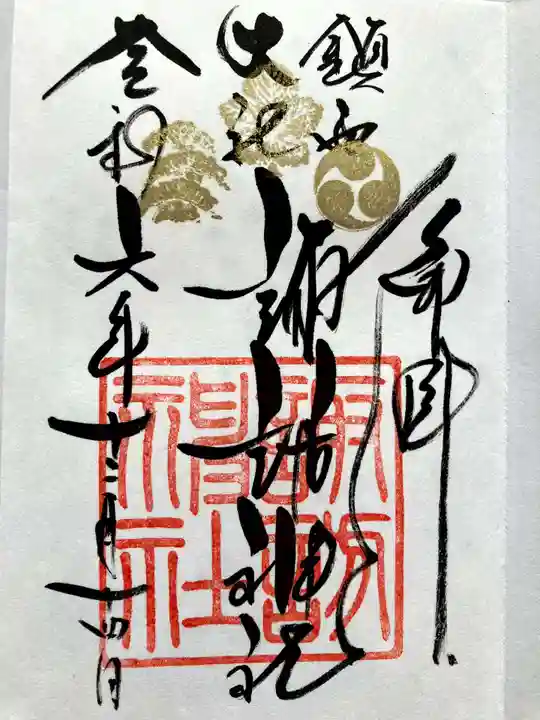 奉拝
鎮西
大社
諏訪神社
令和六年十二月十四日
諏訪
神社